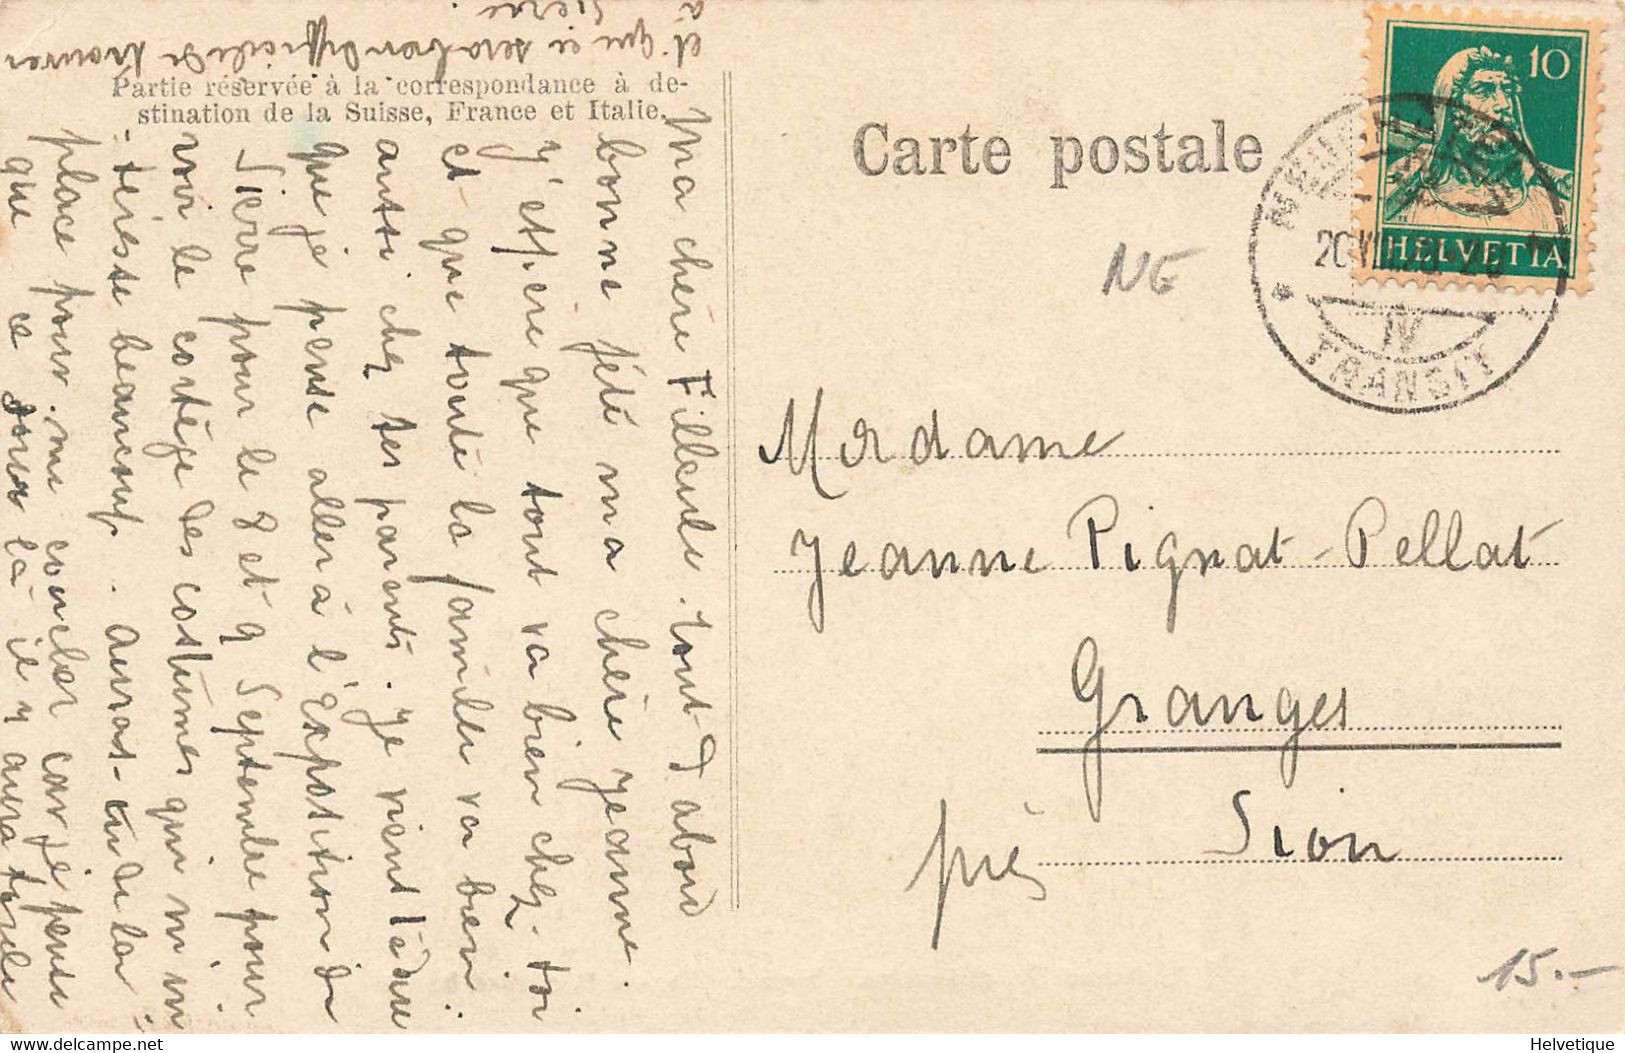 Partie réservée à la correspondance à de-
stination de la Suisse, France et Italie.
Carte postale
10
HELVETIA
TRANSIT
IV
NE
Ma chère Filleule. Tout d'abord
bonne fête ma chère Jeanne.
J'espère que tout va bien chez-toi
et que toute la famille va bien
aussi chez tes parents. Je vient te dire
que je pense aller à l'Exposition de
Sierre pour le 8 et 9 Septembre pour
voir le cortège des costumes qui m'in-
-téresse beaucoup. Auras-tu de la
place pour me coucher car je pense
que ce jour là il y aura foule
et que ce sera bien difficile de trouver
à Sierre.
Madame
Jeanne Pignat-Pellat
Granges
près Sion
15.-
delcampe.net
Helvetique